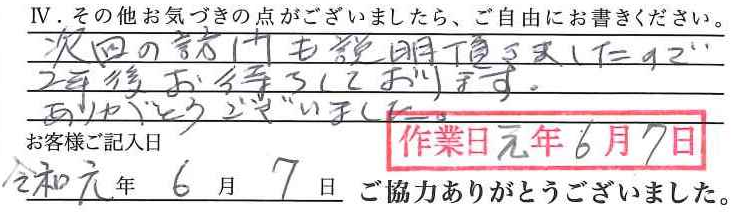 Ⅳ．その他お気づきの点がございましたら、ご自由にお書きください。
次回の訪問も説明頂きましたので
2年後お待ちしております。
ありがとうございました。
お客様ご記入日
作業日元年6月7日
令和元年6月7日
ご協力ありがとうございました。